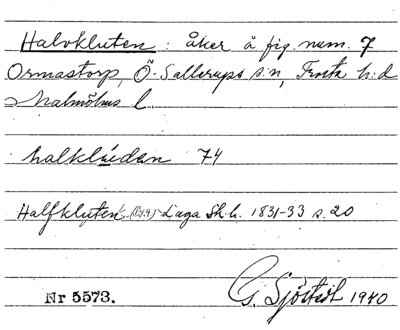 Halvkluten : åker å fig. num. 7
Ormastorp, Ö. Sallerups s:n, Frosta h:d
Malmöhus l.
halklúdan 74
Halfkluten Laga Sk. h. 1831-33 s. 20
Nr 5573.
G. Sjöstedt 1940